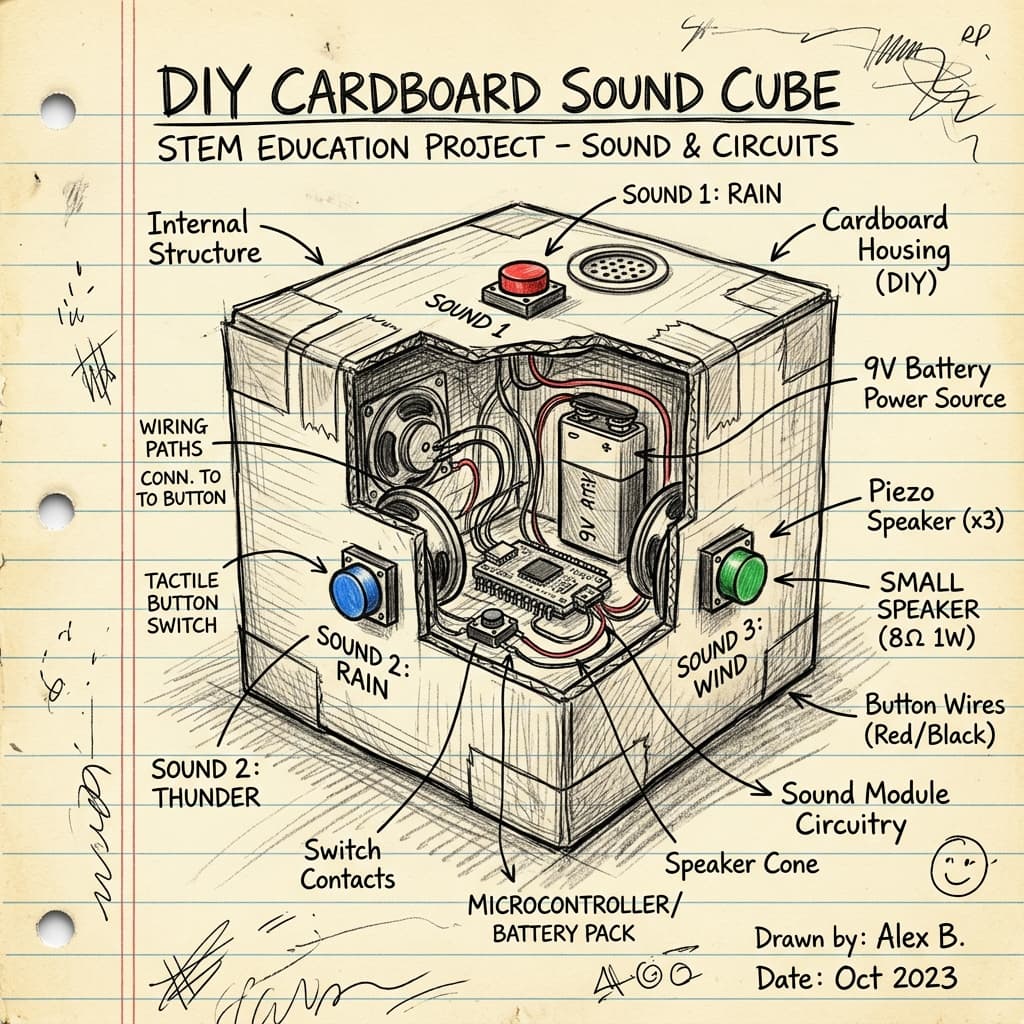 RP.
DIY CARDBOARD SOUND CUBE
STEM EDUCATION PROJECT – SOUND & CIRCUITS
SOUND 1: RAIN
Internal
Structure
Cardboard
Housing
(DIY)
SOUND 1
9V Battery
Power Source
WIRING
PATHS
CONN. TO
TO BUTTON
9V
Piezo
Speaker (x3)
TACTILE
BUTTON
SWITCH
SMALL
SPEAKER
(8Ω 1W)
SOUND 2:
RAIN
SOUND 3:
WIND
Button Wires
(Red/Black)
SOUND 2:
THUNDER
Sound Module
Circuitry
Switch
Contacts
Speaker Cone
MICROCONTROLLER/
BATTERY PACK
Drawn by: Alex B.
Date: Oct 2023